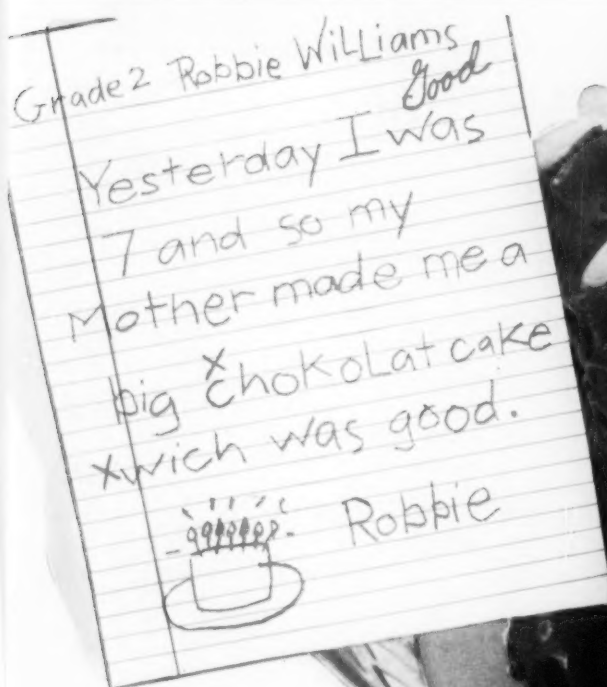 Grade 2 Robbie WiLLiams
Good
Yesterday I was
7 and so my
Mother made me a
x
big chokoLat cake
x wich was good.
Robbie